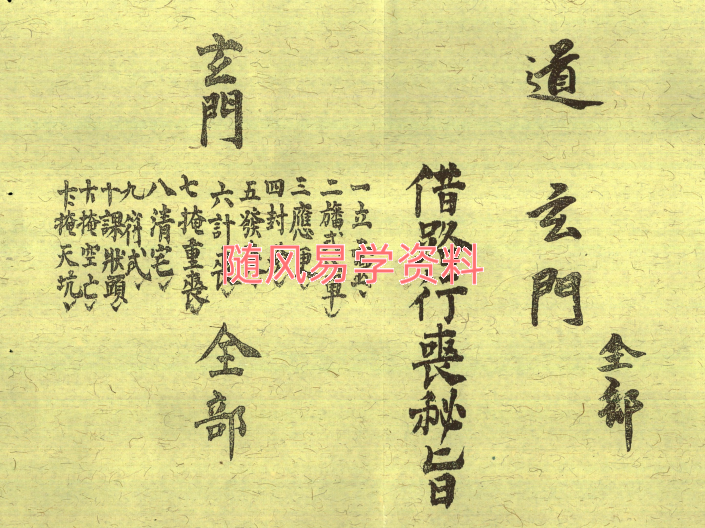 道
玄門
全部
借路行喪秘旨
玄門
一立
二旛
三應
四封
五發
六計喪
七掩重喪
八清宅
九符式
十課狀頭
十一掩空亡
十二掩天坑
全部
随风易学资料